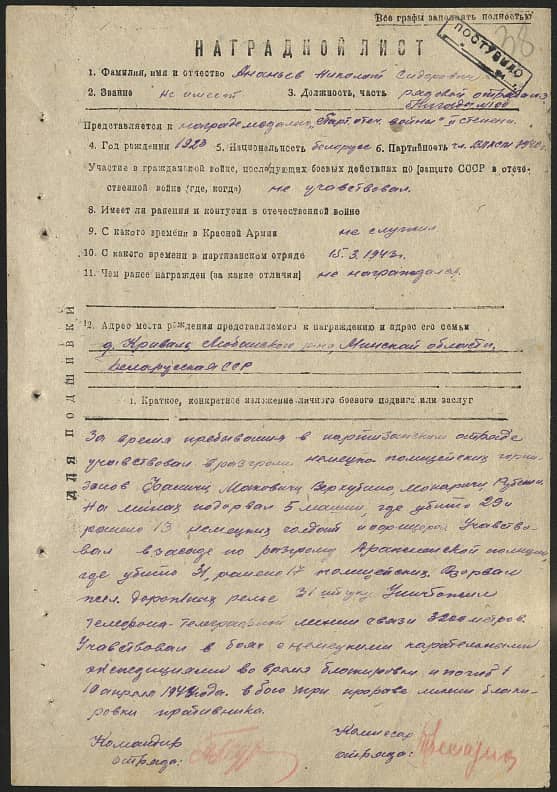 Все графы заполнять полностью
38
ПОСТУПИЛО
НАГРАДНОЙ ЛИСТ
1. Фамилия, имя и отчество Ананьев Николай Сидорович
2. Звание не имеет 3. Должность, часть рядовой отряда
Представляется к награде медалью „Парт. отеч. войны" II степени.
4. Год рождения 1923 5. Национальность белорус 6. Партийность чл. ВЛКСМ 1940г
Участие в гражданской войне, последующих боевых действиях по защите СССР и отече-
ственной войне (где, когда) не учавствовал.
8. Имеет ли ранения и контузии в отечественной войне
9. С какого времени в Красной Армии не служил
10. С какого времени в партизанском отряде 15.3.1943г.
11. Чем ранее награжден (за какие отличия) не награждался
2. Адрес места рождения представляемого к награждению и адрес его семьи
д. Криваль р-на, Минской области,
Белорусская ССР
1. Краткое, конкретное изложение личного боевого подвига или заслуг
ДЛЯ ПОДШИВКИ
За время пребывания в партизанском отряде
учавствовал в разгроме немецко полицейских гарни-
зонов
На минах подорвал 5 машин, где убито 29 и
ранено 13 немецких солдат и офицеров Учавство-
вал в засаде по разгрому полиции,
где убито 31, ранено 17 полицейских. Взорвал
жел. дорожных рельс 31 штуку Уничтожил
телефоно-телеграфной линии связи 3200 метров.
Учавствовал в боях с немецкими карательными
экспедициями во время блокировки и погиб
апреля 1944 года. в бою при прорыве линии блоки-
ровки противника.
Командир
отряда:
Комиссар
отряда: